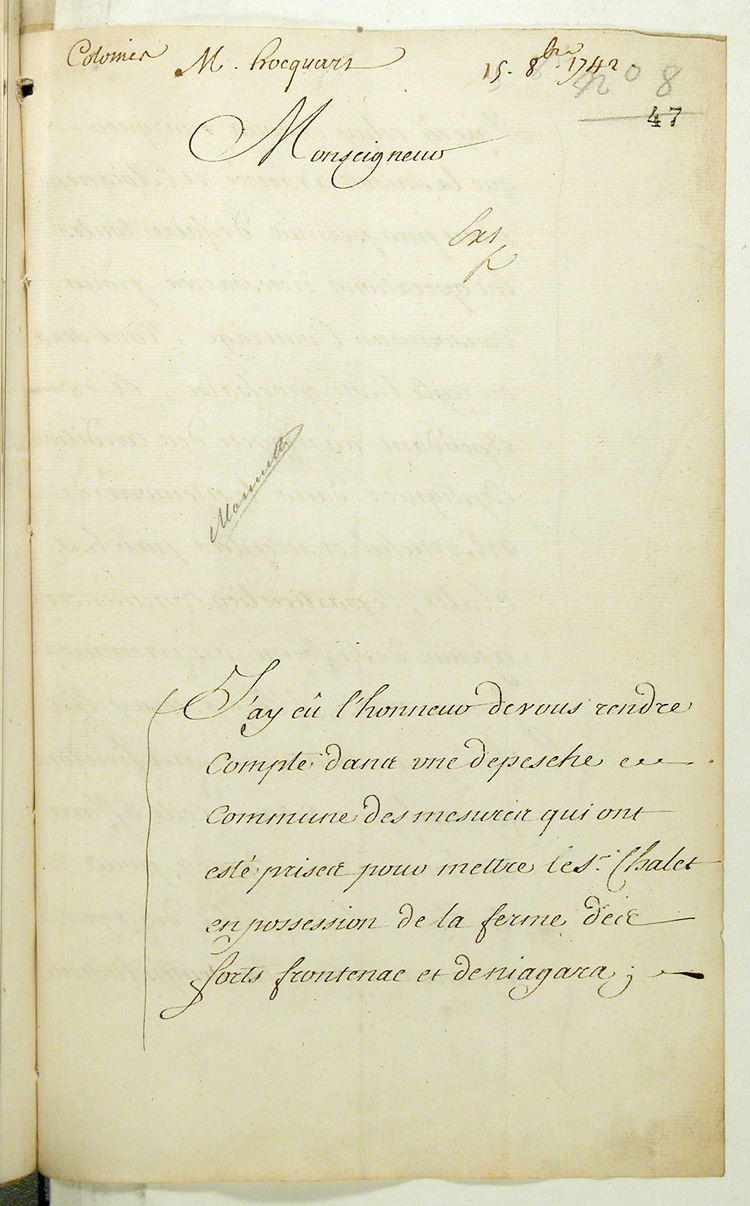 Colonies M. hocquart 15. 8bre. 1742
208
47
Monseigneur
J'ay eû l'honneur de vous rendre
Compte dans une depesche
Commune des mesures qui ont
esté prises pour mettre le Sr. Chalet
en possession de la ferme des
forts frontenac et de niagara ;